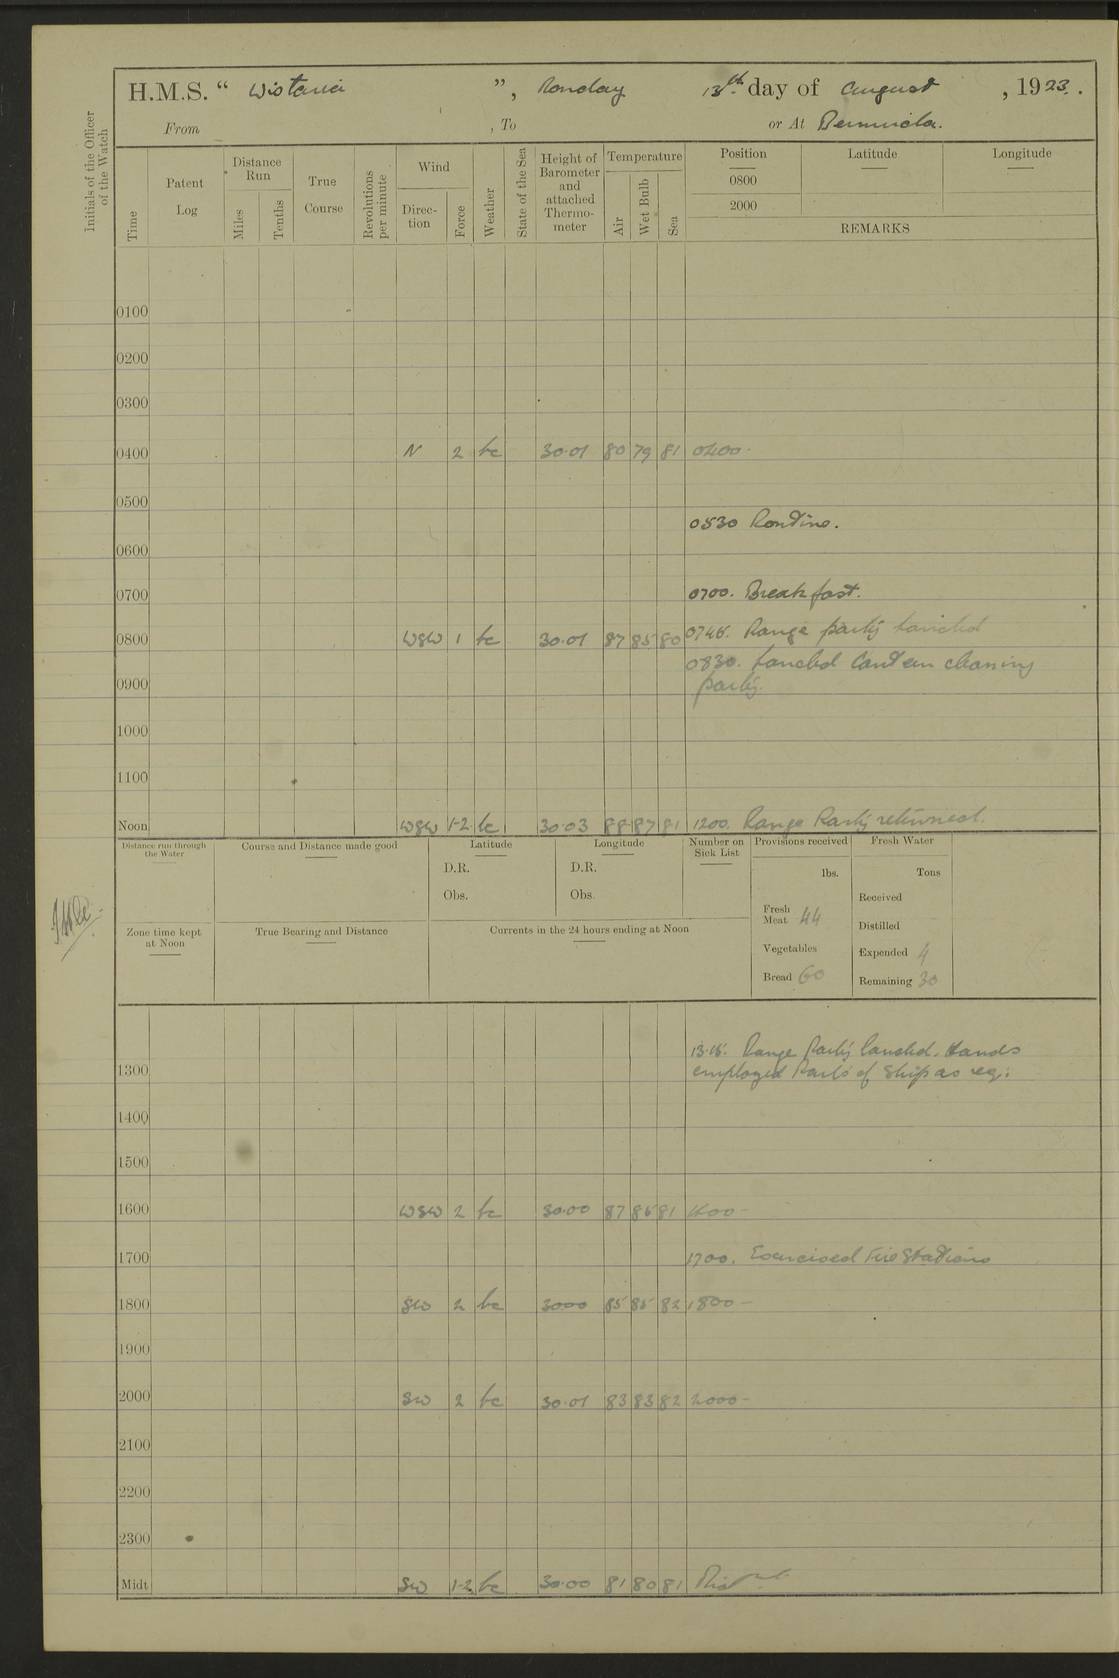 H.M.S. “ Wistaria ”, Monday 13th day of August, 1923.
From , To or At Bermuda.
Initials of the Officer of the Watch
Time
Patent Log
Distance Run
Miles
Tenths
True Course
Revolutions per minute
Wind
Direc-tion
Force
Weather
State of the Sea
Height of Barometer and attached Thermo-meter
Temperature
Air
Wet Bulb
Sea
Position Latitude Longitude
0800
2000
REMARKS
0100
0200
0300
0400 N 2 bc 30.01 80 79 81 0400
0500
0530 Routine.
0600
0700 0700. Breakfast.
0800 WSW 1 bc 30.01 87 85 80 0745. Range party landed
0830. Landed Canteen cleaning
0900 party.
1000
1100
Noon WSW 1-2 bc 30.03 88 87 81 1200. Range Party returned.
Distance run through the Water
Course and Distance made good
Latitude
D.R.
Obs.
Longitude
D.R.
Obs.
Number on Sick List
Provisions received
lbs.
Fresh Meat 44
Vegetables
Bread 60
Fresh Water
Tons
Received
Distilled
Expended 4
Remaining 30
Zone time kept at Noon
True Bearing and Distance
Currents in the 24 hours ending at Noon
13.15. Range Party landed. Hands
1300 employed Parts of Ship as req:
1400
1500
1600 WSW 2 bc 30.00 87 86 81 1600 –
1700 1700. Exercised Fire Stations
1800 SW 2 bc 3000 85 85 82 1800 –
1900
2000 SW 2 bc 30.01 83 83 82 2000 –
2100
2200
2300
Midt SW 1-2 bc 30.00 81 80 81